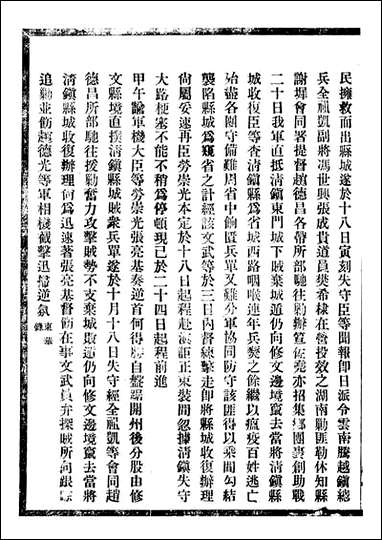 民擁救而出縣城遂於十八日寅刻失守臣等聞報即日派令雲南騰越鎮總
兵全祖凱副將馮世興張成貴道員樊希棣在營投效之湖南勦匪勒休知縣
謝墀會同署提督趙德昌各帶所部馳往勦辦篁侯堯亦招集鄉團專創助戰
二十日我軍直抵清鎮東門城下賊棄城遁仍向修文邊境竄去當將清鎮縣
城收復臣等查清鎮縣為省城西路咽喉連年兵燹之餘繼以瘟疫百姓逃亡
殆盡各團守備難周省中餉匱兵單又難分軍協同防守該匪得以乘間勾結
襲陷縣城為窺省之計經該文武等於三日內督練擊走即將縣城收復辦理
尚屬妥速再臣勞崇光本定於十八日起程赴滇正束裝間忽據清鎮失守
大路梗塞不能不稍為停頓現已於二十四日起程前進
甲午諭軍機大臣等勞崇光張亮基奏逆首何得勝自盤踞開州後分股由修
文縣境直撲清鎮縣城賊衆兵單遂於十月十八日失守經全祖凱等會同趙
德昌所部馳往援勦奮力攻擊賊勢不支棄城敗遁仍向修文邊境竄去當將
清鎮縣城收復辦理尚為迅速著張亮基督飭在事文武員弁探賊所向跟蹤
追勦並飭趙德光等軍相機截擊迅掃逆氛 東華錄